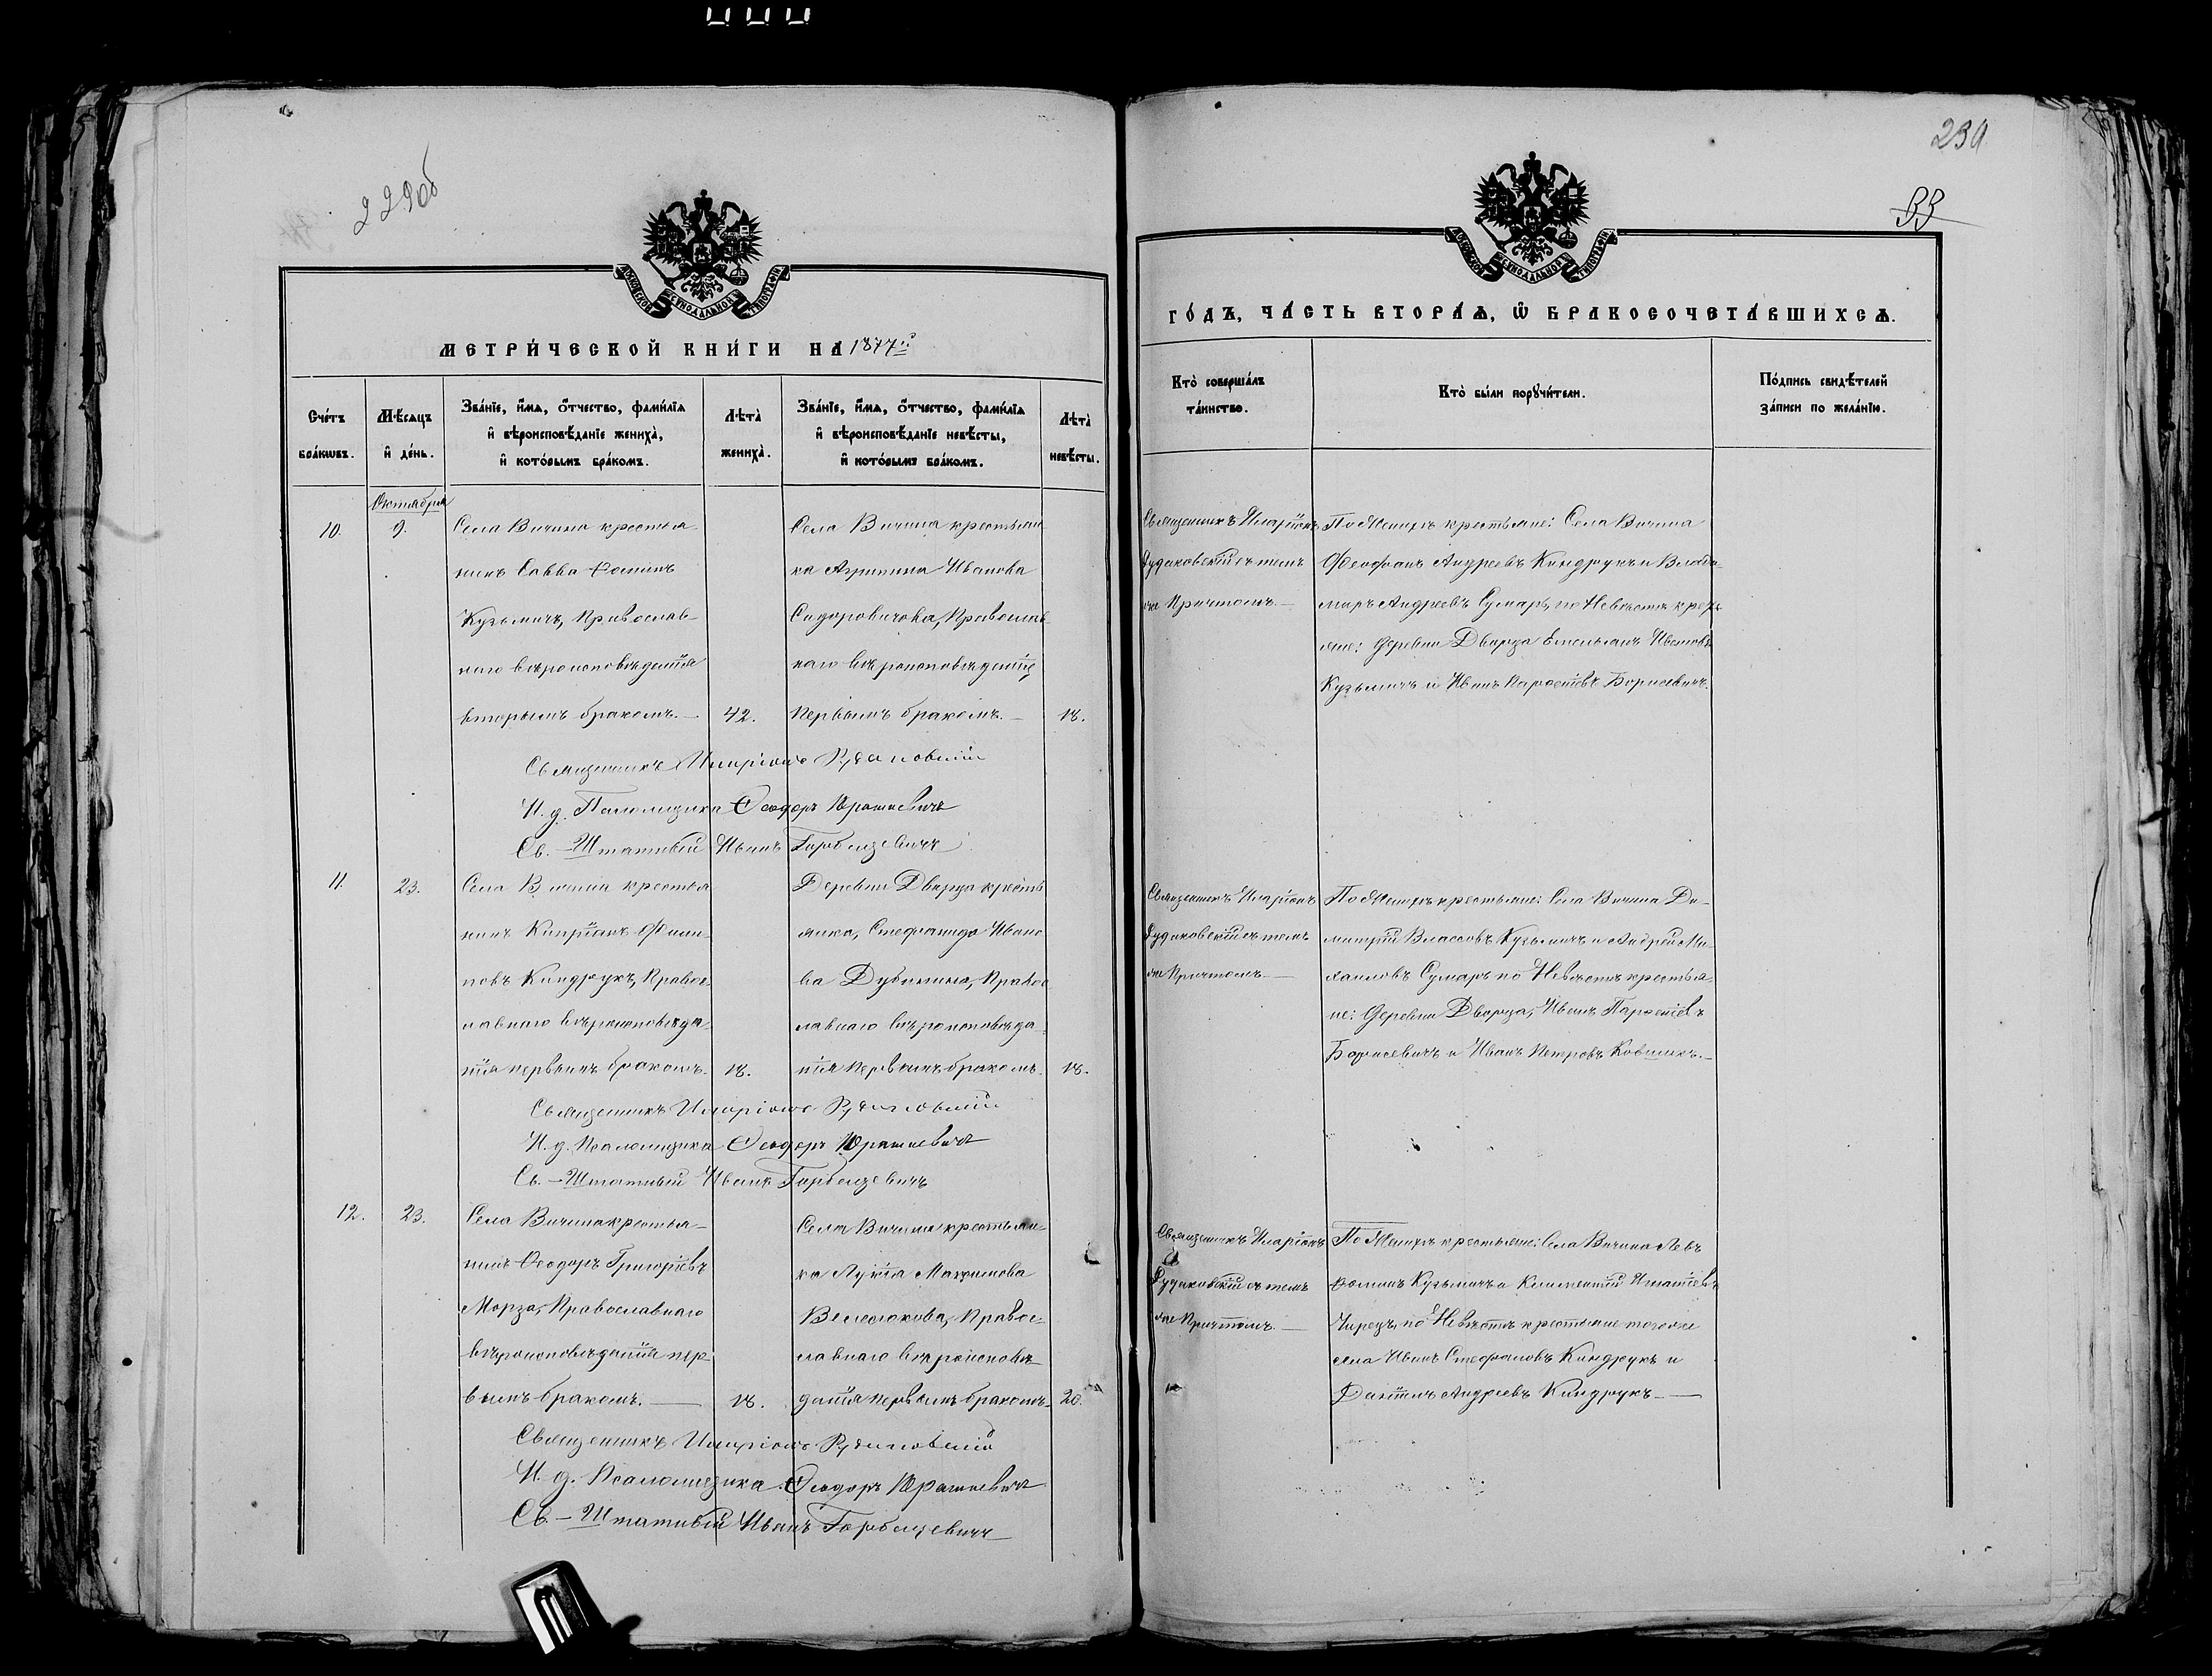 229об
МЕТРИ́ЧЕСКОЙ КНИ́ГИ НА 1877й
Сче́тъ бра́кѡвъ.
Мѣ́сяцъ и҆ де́нь.
Зва́нїе, и҆́мя, ѻ҆́тчество, фами́лїя
и҆ вѣроисповѣ́данїе жениха̀,
и҆ кото́рымъ бра́комъ.
Лѣта̀ жениха̀.
Зва́нїе, и҆́мя, ѻ҆́тчество, фами́лїя
и҆ вѣроисповѣ́данїе невѣ́сты,
и҆ кото́рымъ бра́комъ.
Лѣта̀ невѣ́сты.
Октября
10.
9.
Села Вичина крестья
нинъ Савва Ѳоминъ
Кузьмичъ, Православ-
наго вѣроисповѣданія
вторымъ бракомъ.—
42.
Села Вичина крестьян
ка Агрипина Иванова
Сидоровичова, Православ-
наго вѣроисповѣданія
первымъ бракомъ.—
18.
Священникъ Иларіонъ
И. д. Псаломщика Ѳеодоръ Юрашкевичъ
Св.-Штатный Иванъ Горбацевичъ
11.
23.
Села Вичина крестья
нинъ Кипріанъ Фили-
повъ Киндрукъ, Правос-
лавнаго вѣроисповѣда-
нія первымъ бракомъ.
18.
Деревни Дворца кресть
янка, Стефанида Ивано
ва Дубинина, Правос
лавнаго вѣроисповѣда
нія первымъ бракомъ.
18.
Священникъ Иларіонъ
И. д. Псаломщика Ѳеодоръ Юрашкевичъ
Св.-Штатный Иванъ Горбацевичъ
12.
23.
Села Вичина крестья-
нинъ Ѳеодоръ Григоріевъ
Морза, Православнаго
вѣроисповѣданія пер
вымъ бракомъ.—
18.
Села Вичина крестьян-
ка Лукія Максимова
Велесюкова, Правос-
лавнаго вѣроисповѣ
данія первымъ бракомъ.
20.
Священникъ Иларіонъ
И. д. Псаломщика Ѳеодоръ Юрашкевичъ
Св.-Штатный Иванъ Горбацевичъ
МОСКОВСКОЙ СѴНОДАЛЬНОЙ ТИПОГРАФІИ
230
33
МОСКОВСКОЙ СѴНОДАЛЬНОЙ ТИПОГРАФІИ
ГО́ДЪ, ЧА́СТЬ ВТОРА́Ѧ, Ѽ БРАКОСОЧЕТА́ВШИХСѦ.
Кто̀ соверша́лъ
та́инство.
Кто̀ бы́ли порꙋчи́тели.
По́дпись свидѣ́телей
за́писи по жела́нїю.
Священникъ Иларіонъ
съ тѣмъ
же Причтомъ.—
По Женихѣ крестьяне: Села Вичина
Феофанъ Андреевъ Киндрукъ и Влади-
миръ Андреевъ Сумаръ, по Невѣстѣ кресть
яне: деревни Дворца Емельянъ Ивановъ
Кузьмичъ и Иванъ Парѳеніевъ Борисевичъ.
Священникъ Иларіонъ
съ тѣмъ
же Причтомъ.—
По Женихѣ крестьяне: Села Вичина Ди-
митрій Власовъ Кузьмичъ и Андрей Ми-
хаиловъ Сумаръ по Невѣстѣ крестья-
не: деревни Дворца, Иванъ Парѳеніевъ
Борисевичъ и Иванъ Петровъ Ковшикъ.—
Священникъ Иларіонъ
съ тѣмъ
же Причтомъ.—
По Женихѣ крестьяне: Села Вичина Левъ
Ѳоминъ Кузьмичъ и Климентій Игнатіевъ
по Невѣстѣ крестьяне тогоже
села Иванъ Стефановъ Киндрукъ и
Андреевъ Киндрукъ.—